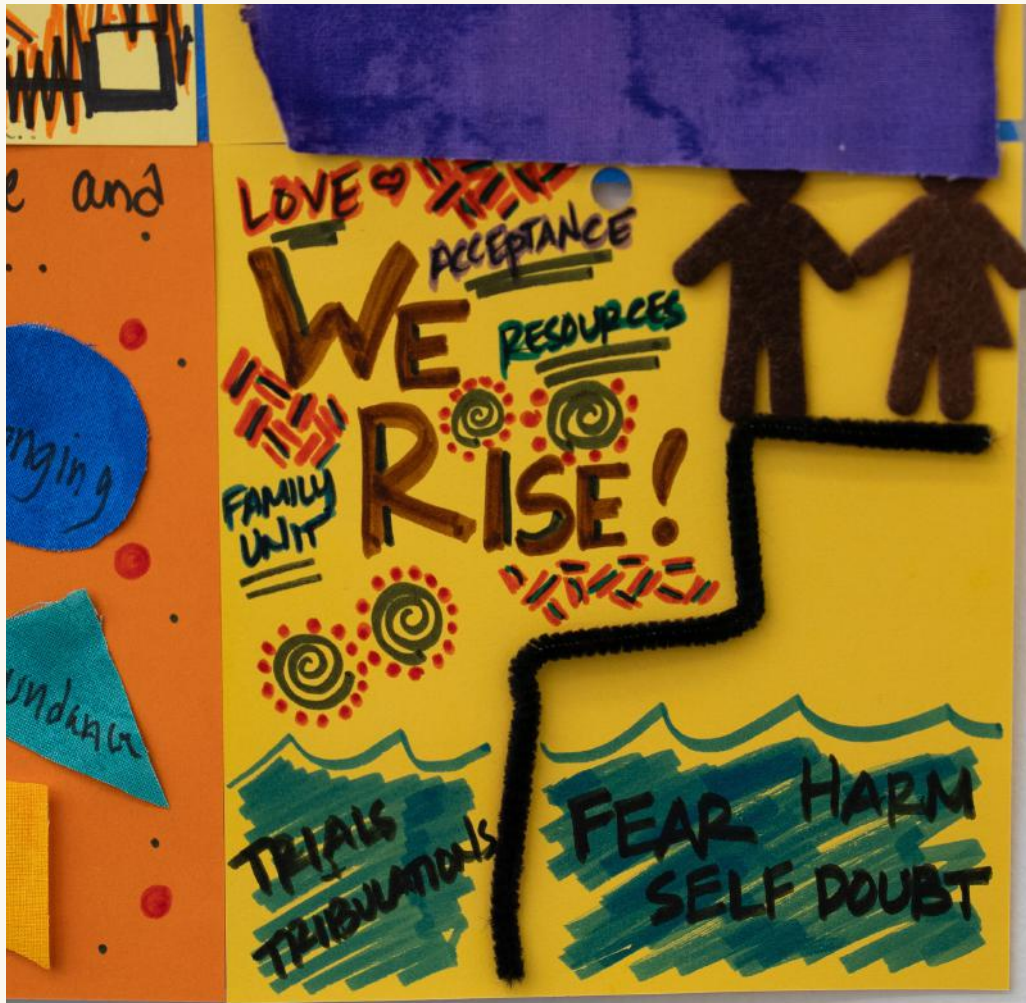 and
LOVE
ACCEPTANCE
WE
RESOURCES
RISE!
FAMILY
UNIT
TRIALS
TRIBULATIONS
FEAR HARM
SELF DOUBT